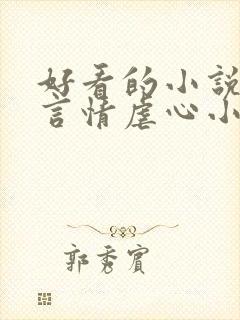 好看的小說
言情虐心小
郭秀賓